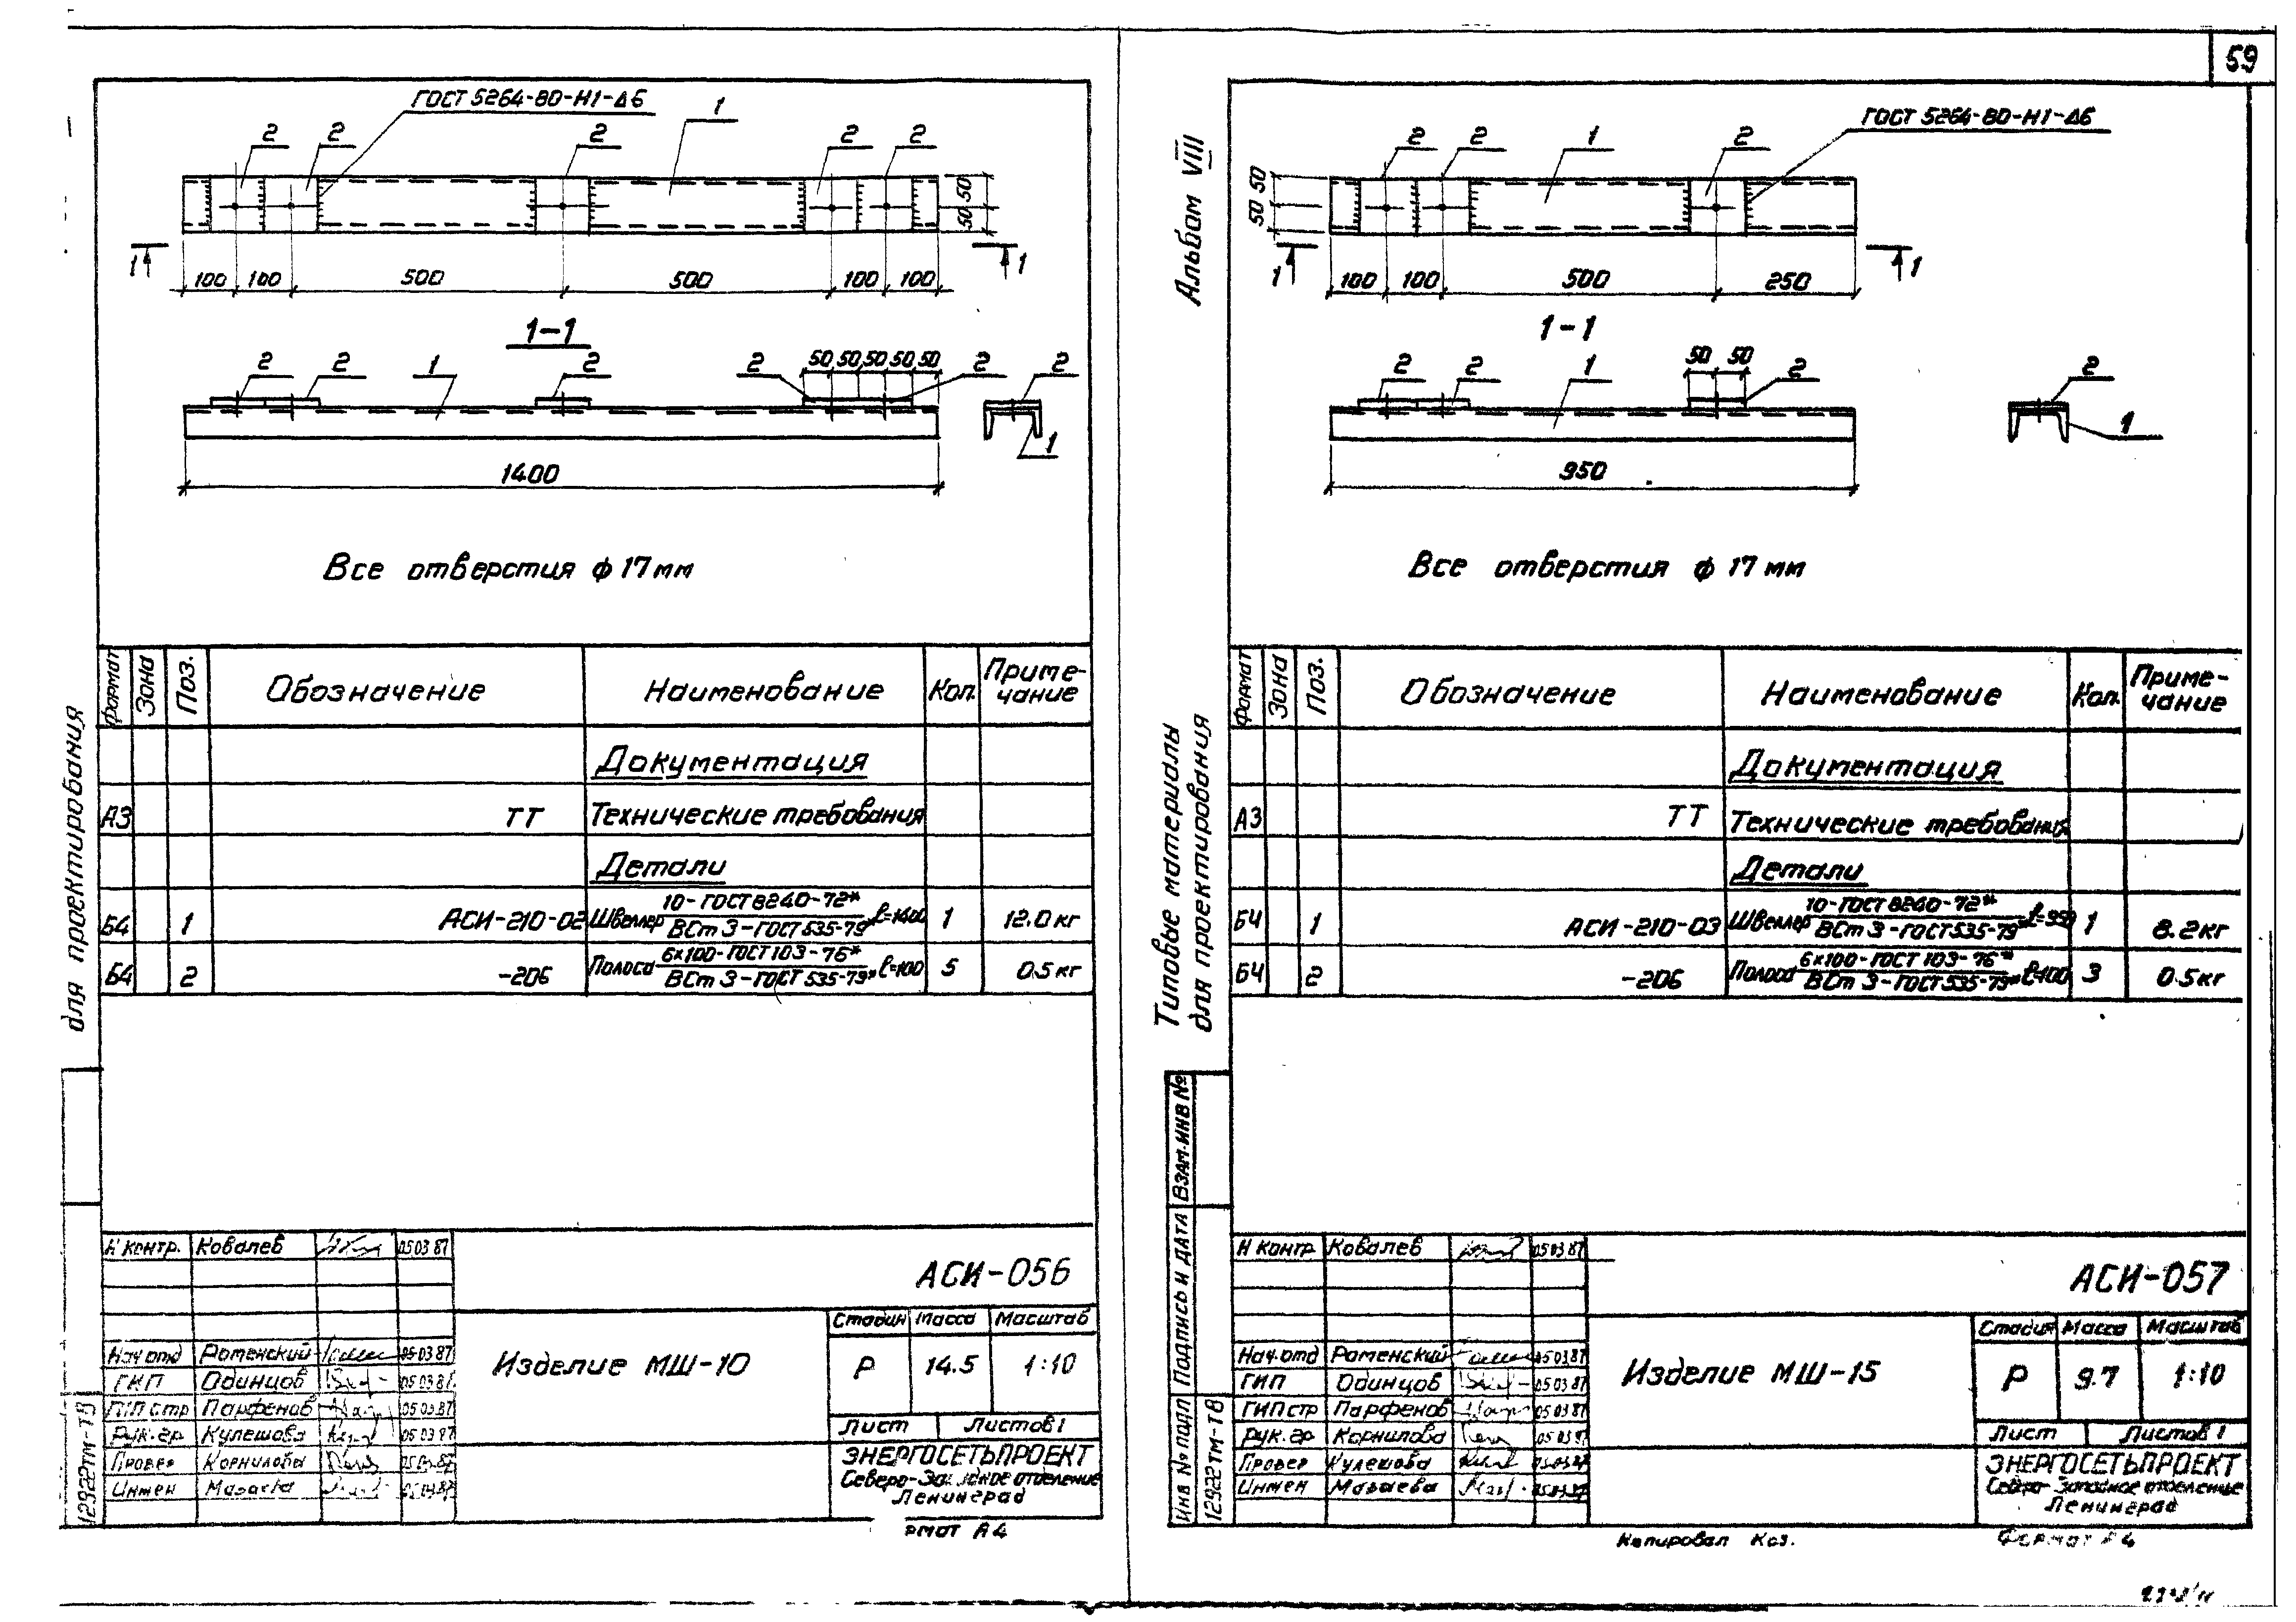 59
ГОСТ 5264-80-Н1-Δ6
1
2 2 2 2 2
50 50
1 1
100 100 500 500 100 100
1-1
2 2 1 2 2 50 50 50 50 50 2 2
1
1400
Все отверстия ф 17 мм
Формат Зона Поз. Обозначение Наименование Кол. Приме-
чание
Документация
А3 ТТ Технические требования
Детали
Б4 1 АСИ-210-02 Швеллер 10-ГОСТ 8240-72* ℓ=1400 1 12.0 кг
ВСт 3-ГОСТ 535-79*
Б4 2 -206 Полоса 6х100-ГОСТ 103-76* ℓ=100 5 0.5 кг
ВСт 3-ГОСТ 535-79*
для проектирования
Н контр. Ковалев 05 03 87
АСИ-056
Нач отд Роменский 05 03 87
ГИП Одинцов 05 03 87
ГИП стр Парфенов 05 03 87
Рук. гр Кулешова 05 03 87
Провер Корнилова 05 03 87
Инжен Мазаева 05 03 87
Изделие МШ-10
Стадия Масса Масштаб
Р 14.5 1:10
Лист Листов 1
ЭНЕРГОСЕТЬПРОЕКТ
Северо-Западное отделение
Ленинград
12922тм-т8
рмат А4
Альбом VIII
ГОСТ 5264-80-Н1-Δ6
2 2 1 2
50 50
1 1
100 100 500 250
1-1
2 2 1 50 50 2 2
1
950
Все отверстия ф 17 мм
Формат Зона Поз. Обозначение Наименование Кол. Приме-
чание
Документация
А3 ТТ Технические требования
Детали
Б4 1 АСИ-210-03 Швеллер 10-ГОСТ 8240-72* ℓ=950 1 8.2 кг
ВСт 3-ГОСТ 535-79*
Б4 2 -206 Полоса 6х100-ГОСТ 103-76* ℓ=100 3 0.5 кг
ВСт 3-ГОСТ 535-79*
Типовые материалы
для проектирования
Взам. инв №
Подпись и дата
Инв № подл
12922тм-т8
Н контр Ковалев 05 03 87
АСИ-057
Нач. отд Роменский 05 03 87
ГИП Одинцов 05 03 87
ГИП стр Парфенов 05 03 87
Рук. гр Корнилова 05 03 87
Провер Кулешова 05 03 87
Инжен Мазаева 05 03 87
Изделие МШ-15
Стадия Масса Масштаб
Р 9.7 1:10
Лист Листов 1
ЭНЕРГОСЕТЬПРОЕКТ
Северо-Западное отделение
Ленинград
Копировал Коз.
Формат 4